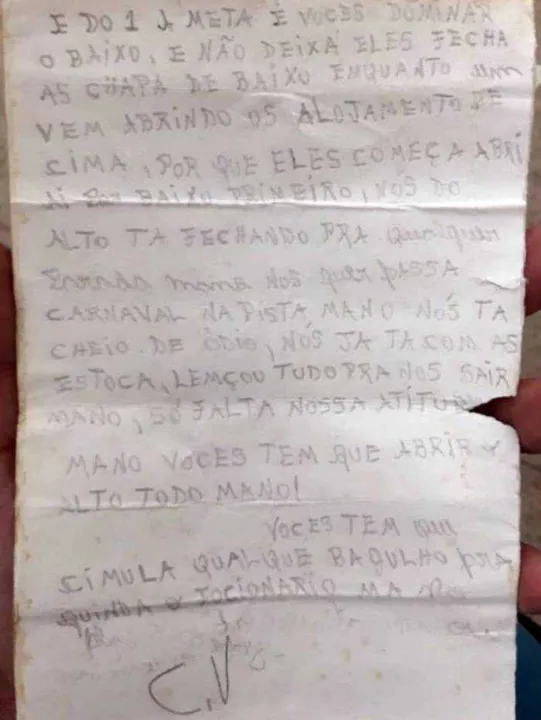 E DO 1 JA META É VOCES DOMINAR
O BAIXO, E NÃO DEIXÁ ELES FECHA
AS CHAPA DE BAIXO ENQUANTO um
VEM ABRINDO OS ALOJAMENTO DE
CIMA, POR QUE ELES COMEÇA ABRI
BAIXO PRIMEIRO, NOS DO
ALTO TA FECHANDO PRA qualquer
mano Nos quer passa
CARNAVAL NA PISTA MANO NÓS TA
CHEIO DE ÓDIO, NÓS JA TA COM AS
ESTOCA, LEMÇOU TUDO PRA NOS SAIR
MANO, SÓ FALTA NOSSA
MANO VOCES TEM QUE ABRIR
ALTO TODO MANO!
VOCES TEM que
SIMULA QUALQUE BAGULHO pra
MA
C.V